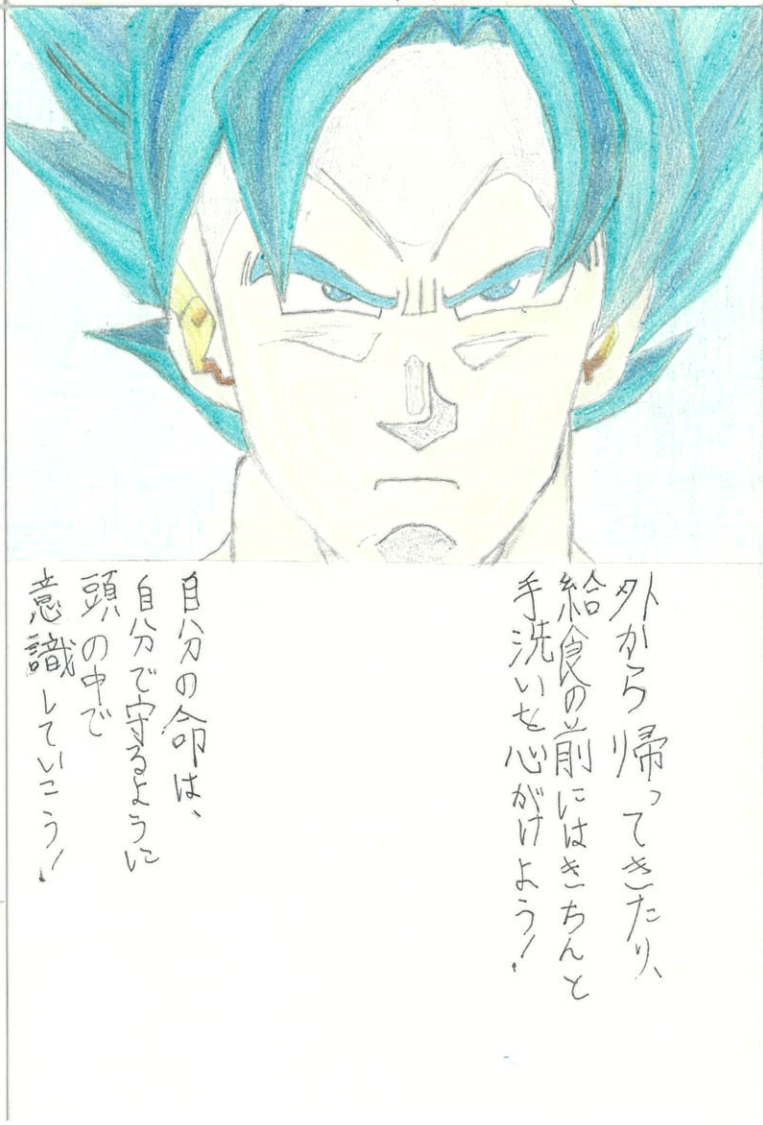 外から帰ってきたり、
給食の前にはきちんと
手洗いを心がけよう!
自分の命は、
自分で守るように
頭の中で
意識していこう!